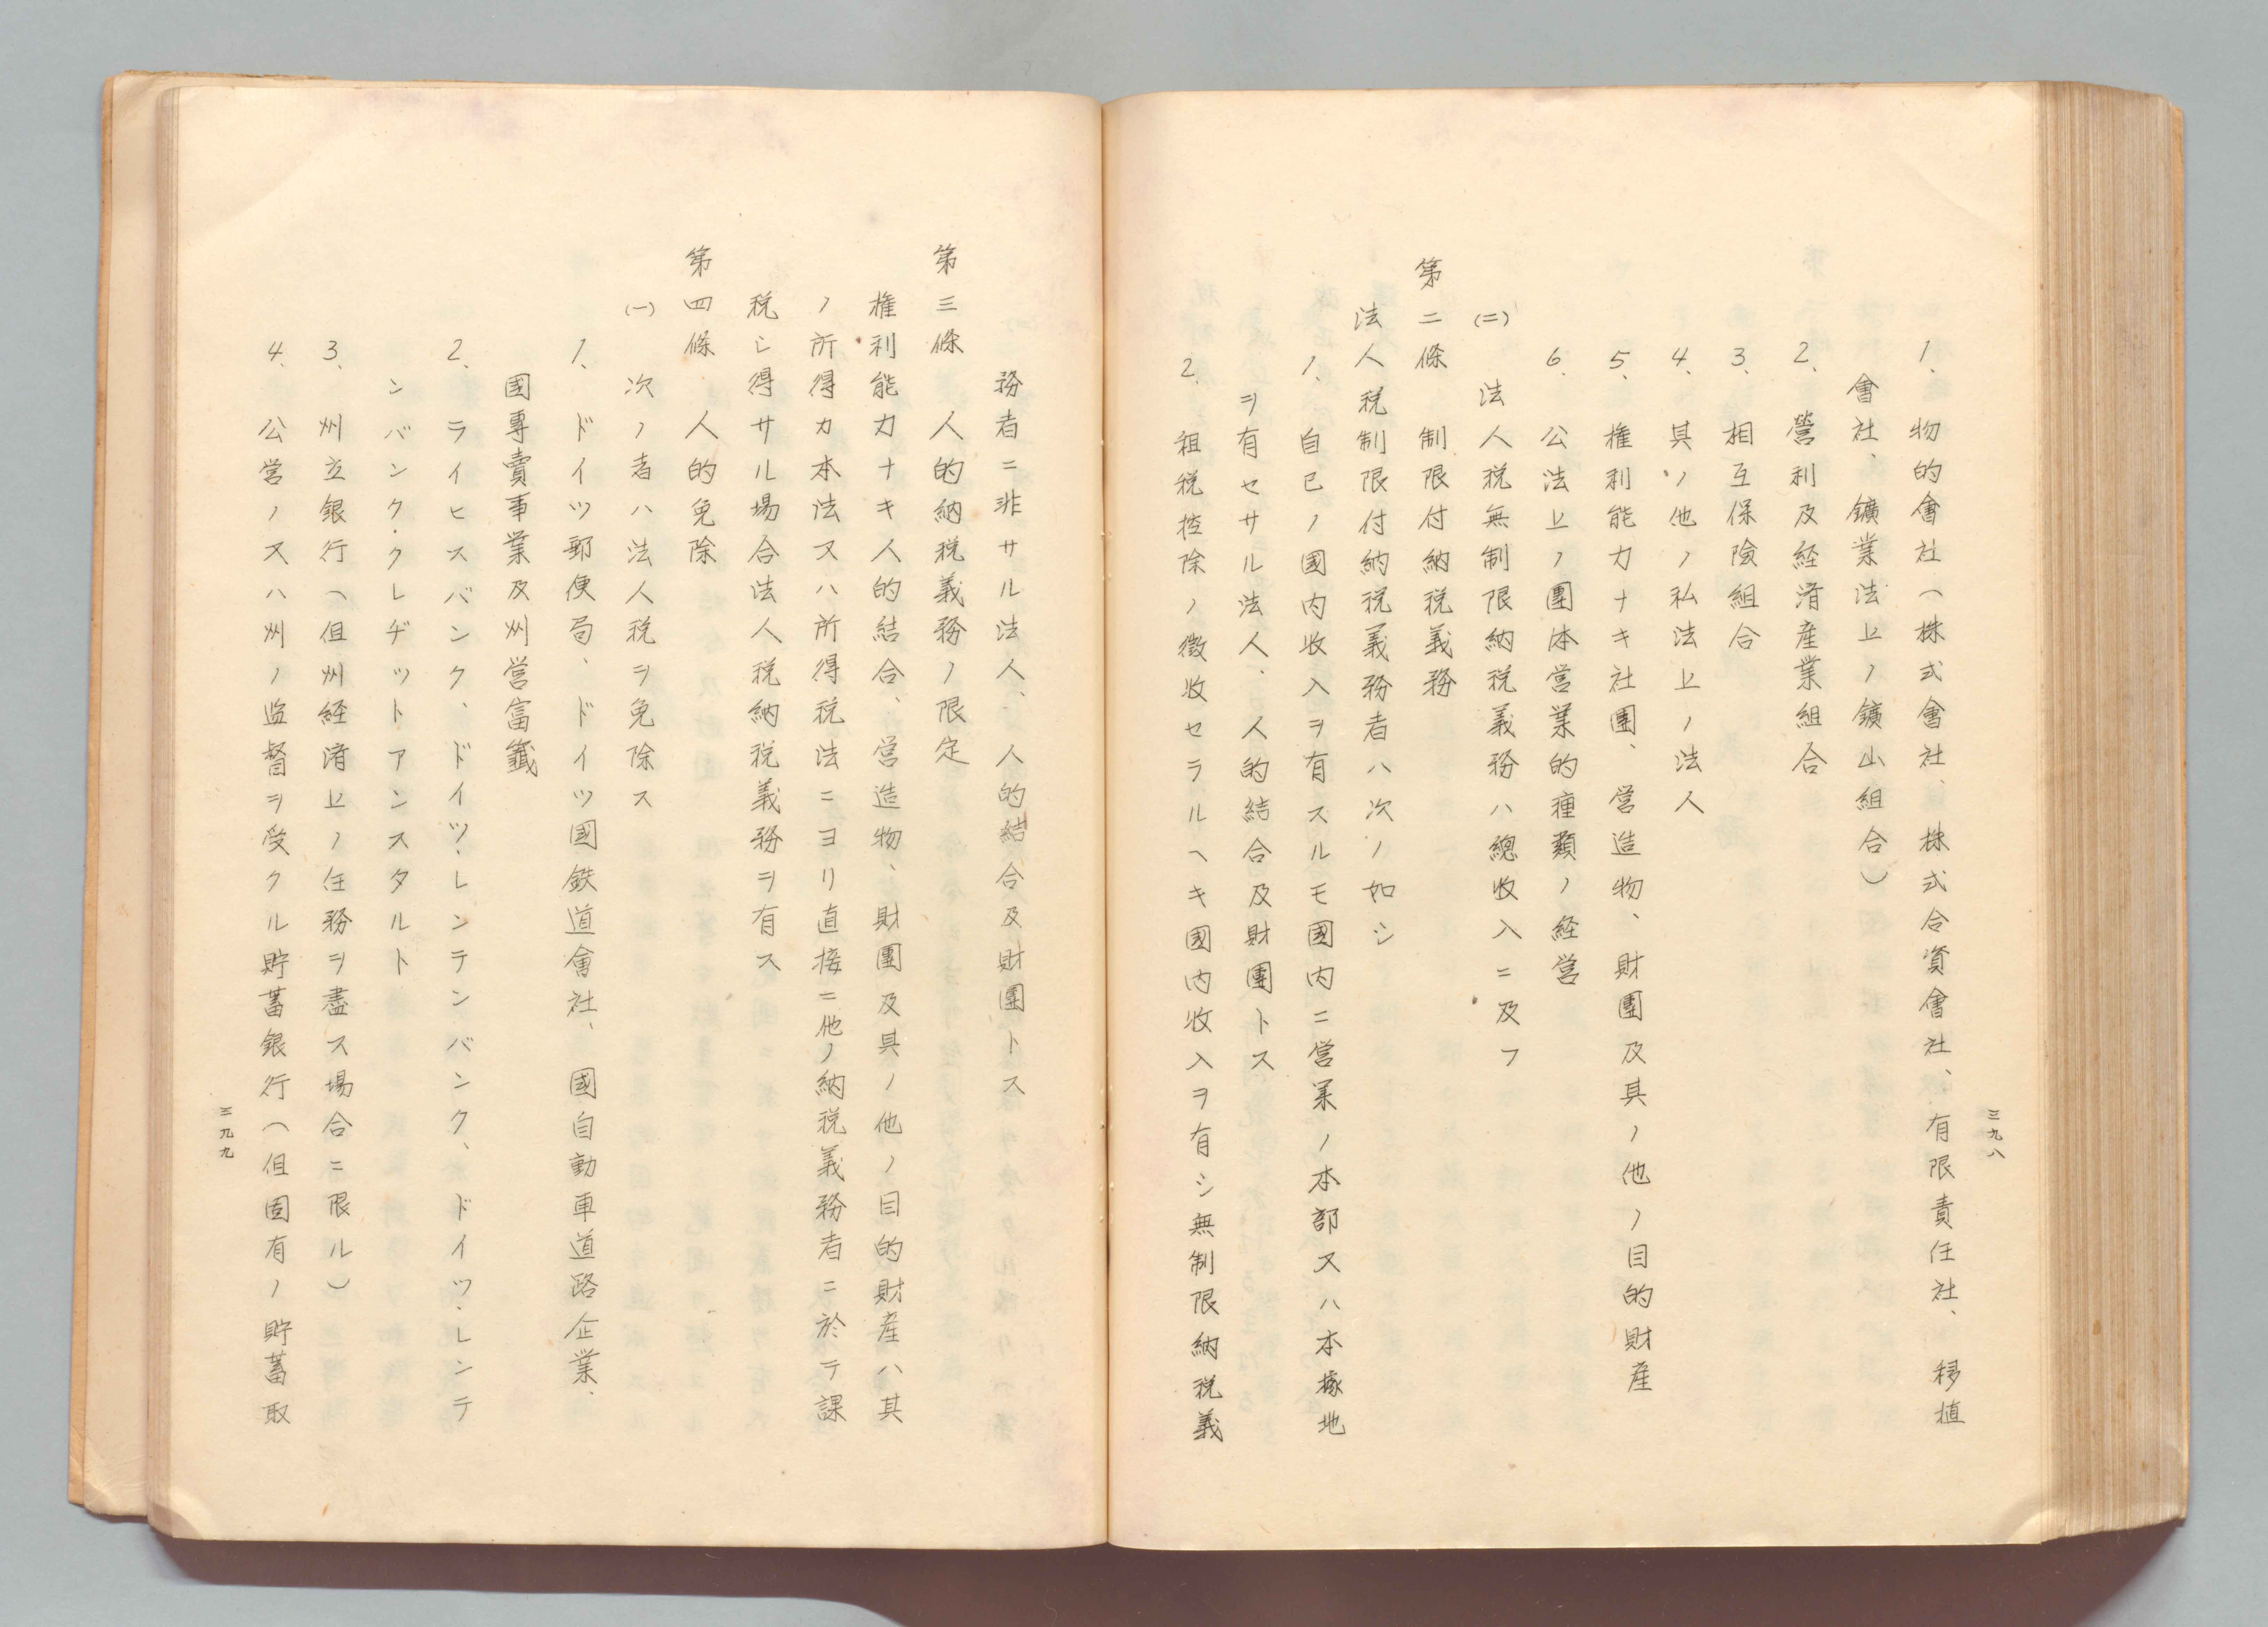 三九八
1、物的會社(株式會社、株式合資會社、有限責任社、移植
會社、鑛業法上ノ鑛山組合)
2、營利及経済産業組合
3、相互保險組合
4、其ノ他ノ私法上ノ法人
5、権利能力ナキ社團、営造物、財團及其ノ他ノ目的財産
6、公法上ノ團体営業的種類ノ経営
(二)法人税無制限納税義務ハ總收入ニ及フ
第二條 制限付納税義務
法人税制限付納税義務者ハ次ノ如シ
1、自己ノ國内收入ヲ有スルモ國内ニ営業ノ本部又ハ本據地
ヲ有セサル法人、人的結合及財團トス
2、祖税控除ノ徴收セラルヘキ國内收入ヲ有シ無制限納税義
務者ニ非サル法人、人的結合及財團トス
第三條 人的納税義務ノ限定
権利能力ナキ人的結合、営造物、財團及其ノ他ノ目的財産ハ其
ノ所得カ本法又ハ所得税法ニヨリ直接ニ他ノ納税義務者ニ於テ課
税シ得サル場合法人税納税義務ヲ有ス
第四條 人的免除
(一)次ノ者ハ法人税ヲ免除ス
1、ドイツ郵便局、ドイツ國鉄道會社、國自動車道路企業、
國専賣事業及州営富籤
2、ライヒスバンク、ドイツ・レンテンバンク、ドイツ・レンテ
ンバンク・クレヂットアンスタルト
3、州立銀行(但州経済上ノ任務ヲ盡ス場合ニ限ル)
4、公営ノ又ハ州ノ監督ヲ受クル貯蓄銀行(但固有ノ貯蓄取
三九九